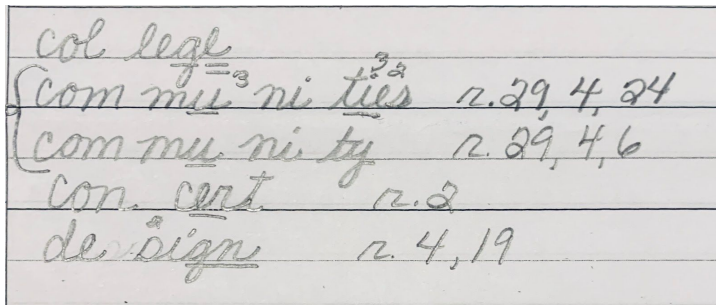 col lege
com mu³ ni ti³e²s r. 29, 4, 24
com mu ni ty r. 29, 4, 6
con cert r. 2
de ²sign r. 4, 19